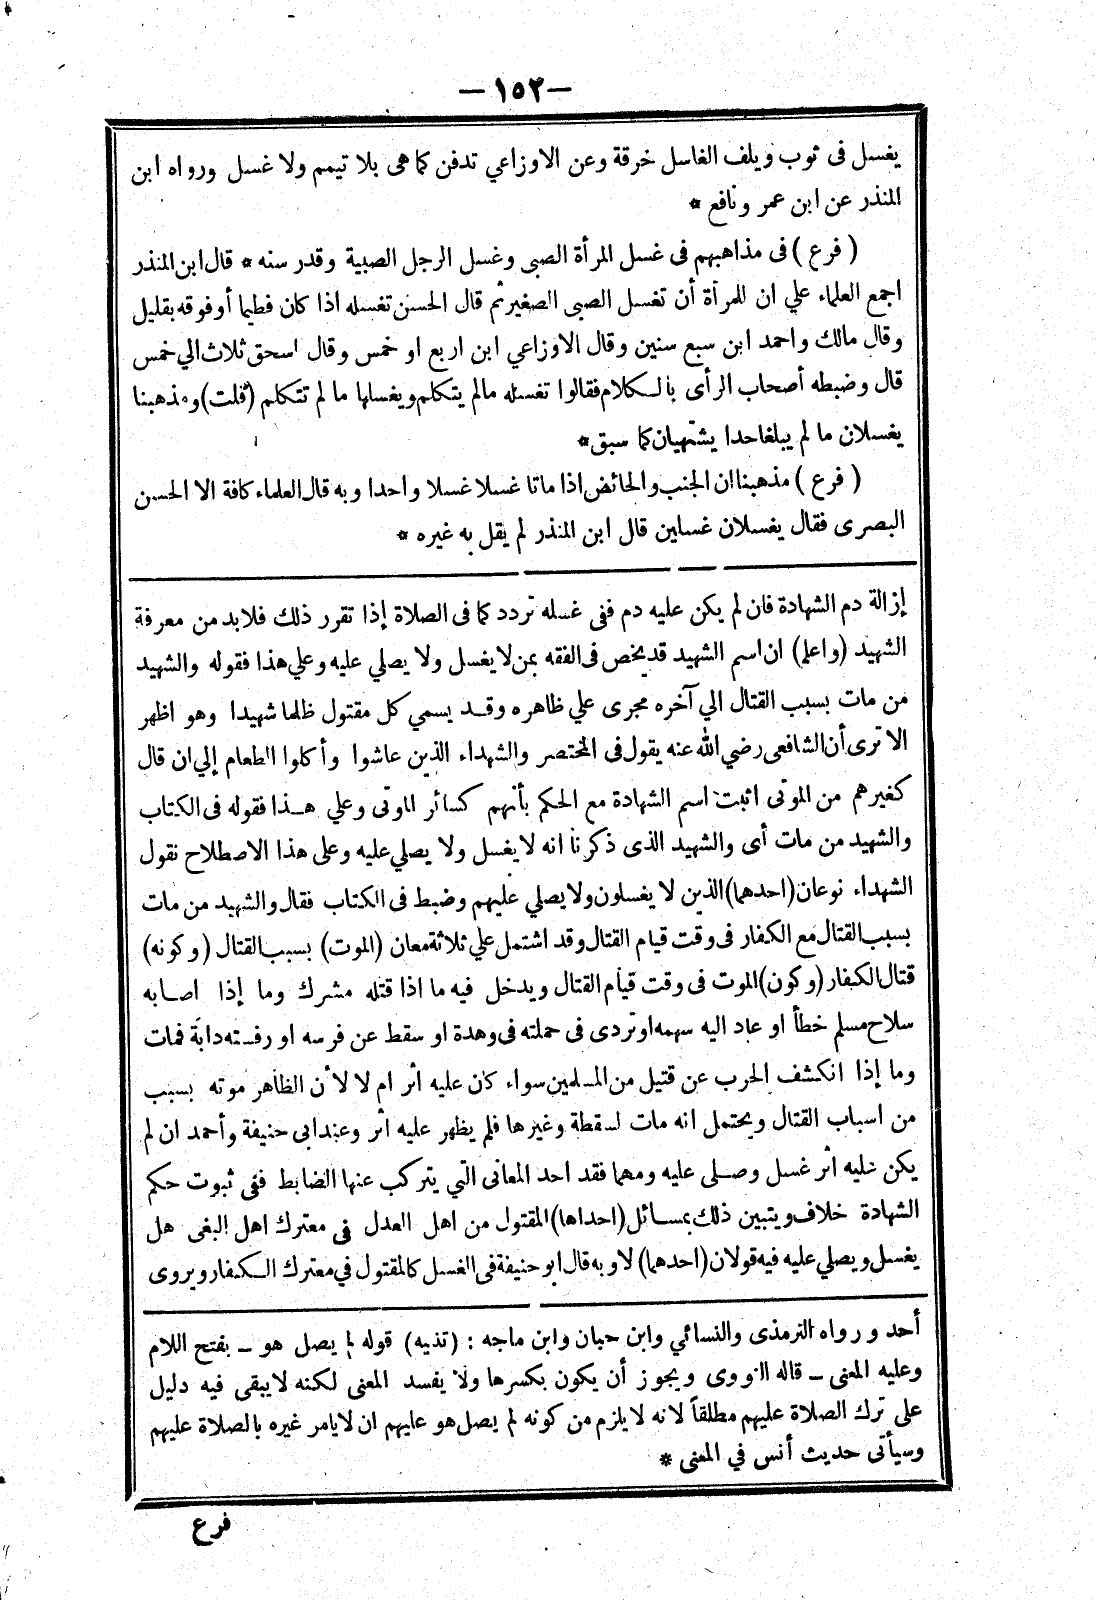 — ١٥٢ —
يغسل فى ثوب ويلف الغاسل خرقة وعن الاوزاعي تدفن كما هى بلا تيمم ولا غسل ورواه ابن
المنذر عن ابن عمر ونافع *
( فرع ) فى مذاهبهم فى غسل المرأة الصبى وغسل الرجل الصبية وقدر سنه * قال ابن المنذر
اجمع العلماء علي ان للمرأة أن تغسل الصبى الصغير ثم قال الحسن تغسله اذا كان فطيما أو فوقه بقليل
وقال مالك واحمد ابن سبع سنين وقال الاوزاعي ابن اربع او خمس وقال اسحق ثلاث الي خمس
قال وضبطه أصحاب الرأى بالكلام فقالوا تغسله مالم يتكلم ويغسلها ما لم تتكلم (قلت) ومذهبنا
يغسلان ما لم يبلغا حدا يشتهيان كما سبق *
( فرع ) مذهبنا ان الجنب والحائض اذا ماتا غسلا غسلا واحدا وبه قال العلماء كافة الا الحسن
البصرى فقال يغسلان غسلين قال ابن المنذر لم يقل به غيره *
إزالة دم الشهادة فان لم يكن عليه دم ففى غسله تردد كما فى الصلاة إذا تقرر ذلك فلابد من معرفة
الشهيد (واعلم) ان اسم الشهيد قد يخص فى الفقه بمن لا يغسل ولا يصلي عليه وعلي هذا فقوله والشهيد
من مات بسبب القتال الي آخره مجرى علي ظاهره وقد يسمي كل مقتول ظلما شهيدا وهو اظهر
الا ترى أن الشافعى رضي الله عنه يقول فى المختصر والشهداء الذين عاشوا وأكلوا الطعام إلي ان قال
كغيرهم من الموتى اثبت اسم الشهادة مع الحكم بأنهم كسائر الموتى وعلي هذا فقوله فى الكتاب
والشهيد من مات أى والشهيد الذى ذكرنا انه لا يغسل ولا يصلي عليه وعلى هذا الاصطلاح نقول
الشهداء نوعان (احدهما) الذين لا يغسلون ولا يصلي عليهم وضبط فى الكتاب فقال والشهيد من مات
بسبب القتال مع الكفار فى وقت قيام القتال وقد اشتمل علي ثلاثة معان (الموت) بسبب القتال (وكونه)
قتال الكفار (وكون) الموت فى وقت قيام القتال ويدخل فيه ما اذا قتله مشرك وما إذا اصابه
سلاح مسلم خطأ او عاد اليه سهمه او تردى فى حملته فى وهدة او سقط عن فرسه او رفسته دابة فمات
وما إذا انكشف الحرب عن قتيل من المسلمين سواء كان عليه اثر ام لا لأن الظاهر موته بسبب
من اسباب القتال ويحتمل انه مات لسقطة وغيرها فلم يظهر عليه اثر وعند ابى حنيفة وأحمد ان لم
يكن عليه اثر غسل وصلى عليه ومهما فقد احد المعانى التي يتركب عنها الضابط ففى ثبوت حكم
الشهادة خلاف ويتبين ذلك بمسائل (احداها) المقتول من اهل العدل فى معترك اهل البغى هل
يغسل ويصلي عليه فيه قولان (احدهما) لا وبه قال ابو حنيفة فى الغسل كالمقتول في معترك الكفار ويروى
أحد ورواه الترمذى والنسائي وابن حبان وابن ماجه : (تنبيه) قوله لم يصل هو ـ بفتح اللام
وعليه المعنى ـ قاله النووى ويجوز أن يكون بكسرها ولا يفسد المعنى لكنه لا يبقى فيه دليل
على ترك الصلاة عليهم مطلقاً لانه لا يلزم من كونه لم يصل هو عليهم ان لا يامر غيره بالصلاة عليهم
وسيأتى حديث أنس في المعنى *
فرع